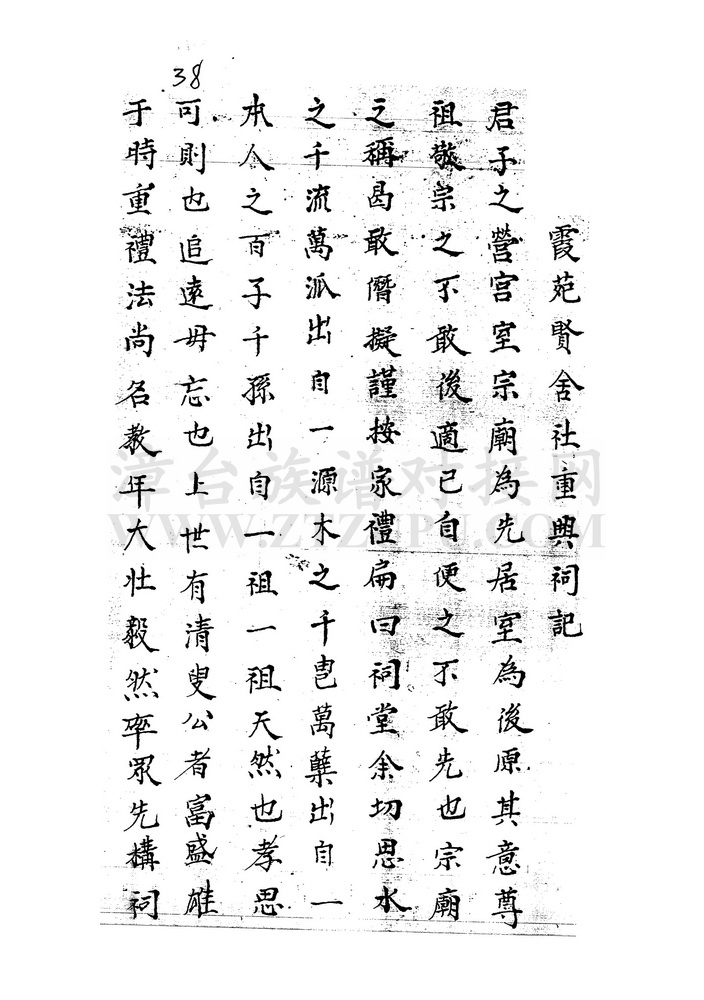 38
霞苑賢舍社重興祠記
君子之營宮室宗廟為先居室為後原其意尊
祖敬宗之不敢後適己自便之不敢先也宗廟
之稱曷敢僭擬謹按家禮扁曰祠堂余切思水
之千流萬派出自一源木之千苞萬蘖出自一
本人之百子千孫出自一祖一祖天然也孝思
可則也追遠毋忘也上世有清叟公者富盛雄
于時重禮法尚名教年大壯毅然率眾先構祠
漳台族谱对接网
WWW.ZTZUPU.COM